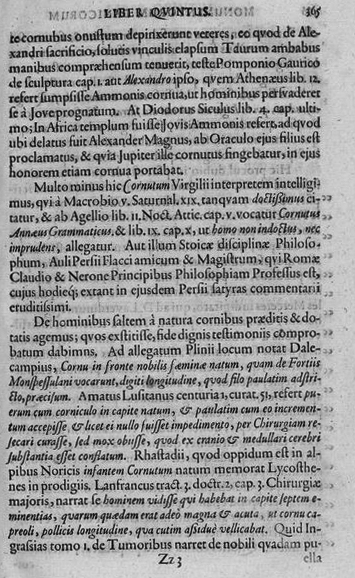 LIBER QVINTUS. 365
te cornubus onustum depinxerunt veteres, eo quod de Ale-
xandri sacrificio, solutis vinculis elapsum Taurum ambabus
manibus compræhensum tenuerit, teste Pomponio Gaurico
de sculptura cap. 1. aut Alexandro ipso, qvem Athenæus lib. 12.
refert sumpsisse Ammonis cornua, ut hominibus persvaderet
se à Jove prognatum. At Diodorus Siculus lib. 4. cap. ulti-
mo; In Africa templum fuisse Jovis Ammonis refert, ad qvod
ubi delatus fuit Alexander Magnus, ab Oraculo ejus filius est
proclamatus, & qvia Jupiter ille cornutus fingebatur, in ejus
honorem etiam cornua portabat.
Multo minus hic Cornutum Virgilii interpretem intelligi-
mus, qvi à Macrobio v. Saturnal. XIX. tanqvam doctissimus ci-
tatur, & ab Agellio lib. 11. Noct. Attic. cap. v. vocatur Cornutus
Annæus Grammaticus, & lib. IX. cap. X, ut homo non indoctus, nec
imprudens, allegatur. Aut illum Stoicæ disciplinæ Philoso-
phum, Auli Persii Flacci amicum & Magistrum, qvi Romæ
Claudio & Nerone Principibus Philosophiam Professus est,
cujus hodieq; extant in ejusdem Persii satyras commentarii
eruditissimi.
De hominibus saltem à natura cornibus præditis & do-
tatis agemus; qvos exstitisse, fide dignis testimoniis compro-
batum dabimus. Ad allegatum Plinii locum notat Dale-
campius, Cornu in fronte nobilis fæminæ natum, quam de Fortiis
Monspessulani vocarunt, digiti longitudine, quod filo paulatim adstri-
cto, præcisum. Amatus Lusitanus centuria 1. curat. 51. refert pu-
erum cum corniculo in capite natum, & paulatim cum eo incremen-
tum accepisse, & licet ei nullo fuisset impedimento, per Chirurgiam re-
secari curasse, sed mox obiisse, quod ex cranio & medullari cerebri
substantia esset conflatum. Rhastadii, qvod oppidum est in al-
pibus Noricis infantem Cornutum natum memorat Lycosthe-
nes in prodigiis. Lanfrancus tract. 3. doctr. 2. cap. 3. Chirurgiæ
majoris, narrat se hominem vidisse qvi habebat in capite septem e-
minentias, quarum quædam erat adeo magna & acuta, ut cornu ca-
preoli, pollicis longitudine, qua cutim assiduè vellicabat. Quid In-
grassias tomo 1. de Tumoribus narret de nobili qvadam pu-
Zz 3 ella